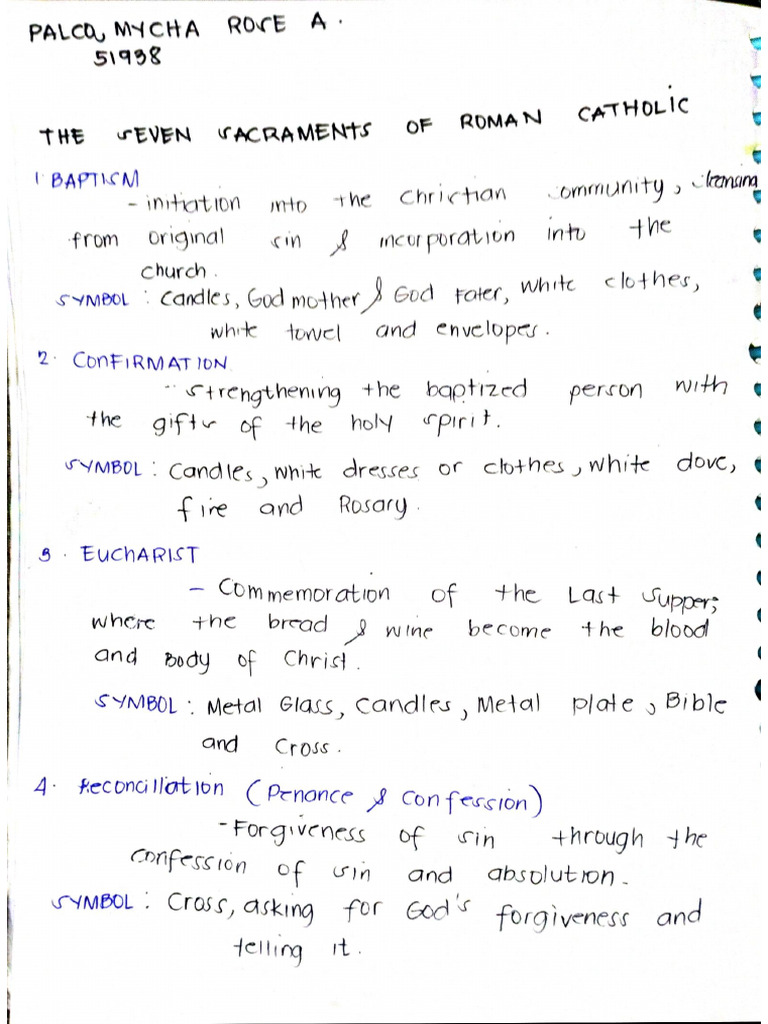 PALCO, MYCHA ROSE A.
51938
THE SEVEN SACRAMENTS OF ROMAN CATHOLIC
1 BAPTISM
- initiation into the Christian community, cleansing
from original sin & incorporation into the
church.
SYMBOL : Candles, God mother & God Fater, white clothes,
white towel and envelopes.
2. CONFIRMATION
- strengthening the baptized person with
the gifts of the holy spirit.
SYMBOL : Candles, white dresses or clothes, white dove,
fire and Rosary.
3. EUCHARIST
- Commemoration of the Last Supper;
where the bread & wine become the blood
and Body of Christ.
SYMBOL : Metal Glass, Candles, Metal plate, Bible
and Cross.
4. Reconcillation (Penance & Confession)
- Forgiveness of sin through the
confession of sin and absolution.
SYMBOL : Cross, asking for God's forgiveness and
telling it.